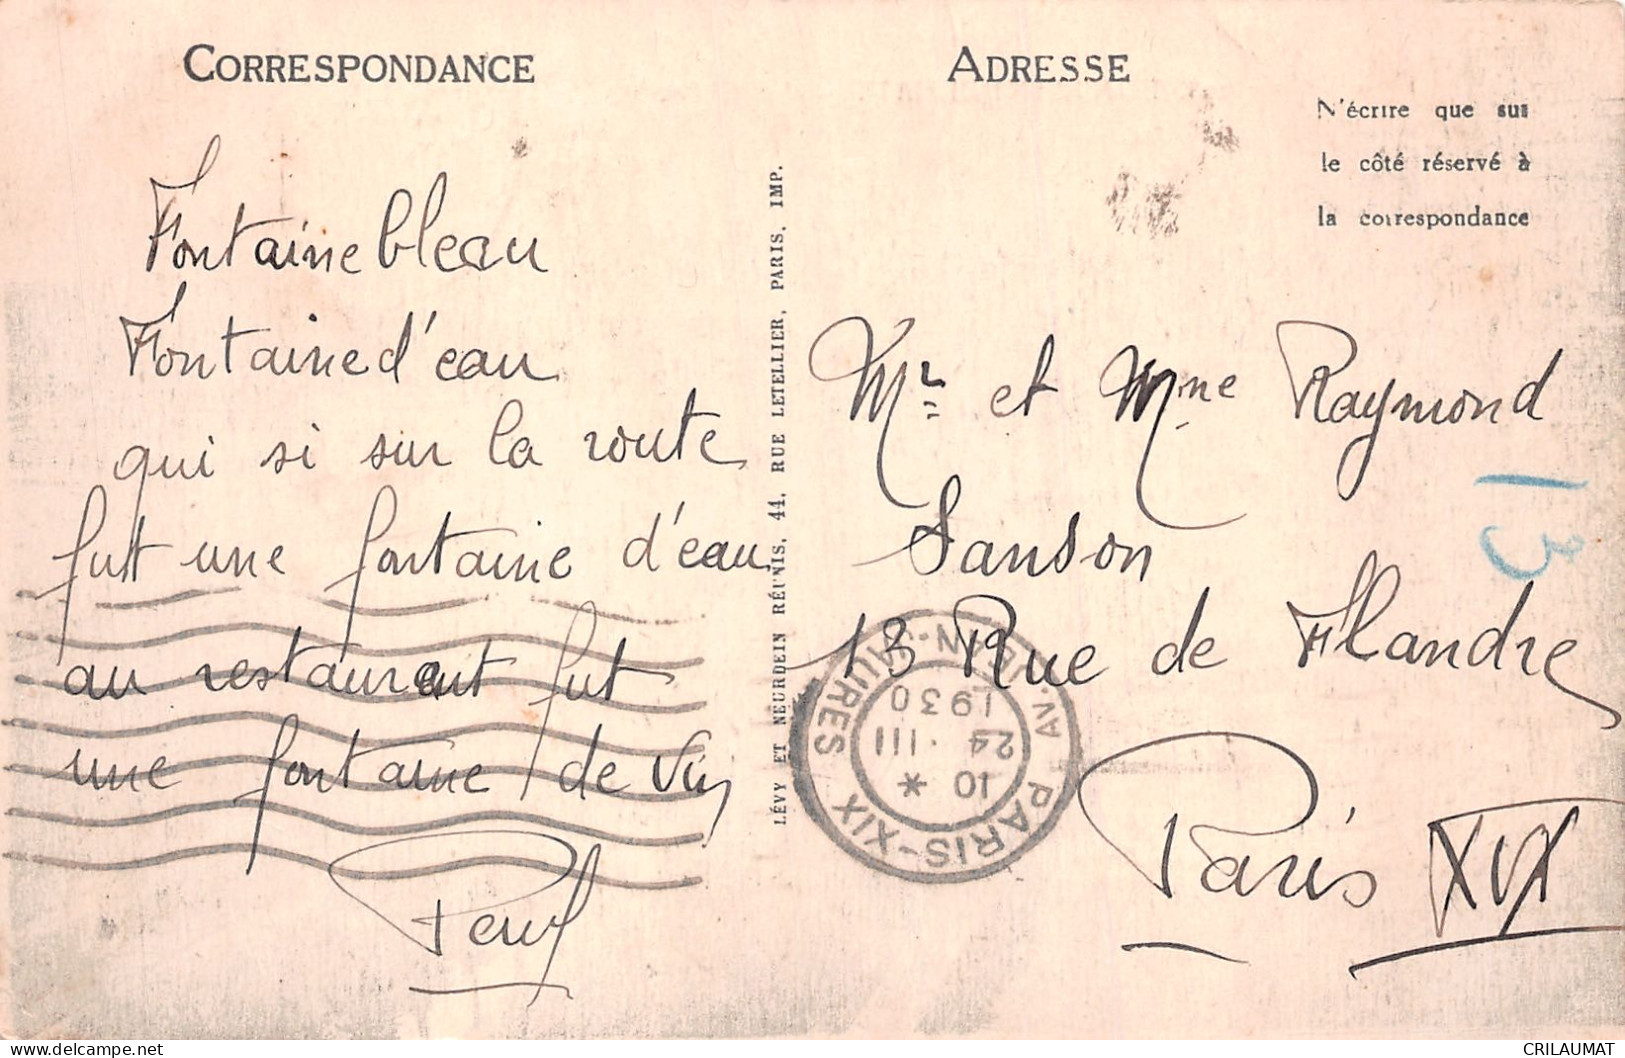 CORRESPONDANCE
Fontainebleau
Fontaine d'eau
qui si sur la route
futt une fontaine d'eau
au restaurant fut
une fontaine de Vin
ADRESSE
N'écrire que sur
le côté réservé à
la correspondance
LÉVY ET NEURDEIN RÉUNIS, 44, RUE LETELLIER, PARIS, IMP.
Mr et Mme Raymond
Sanson
13 Rue de Flandre
Paris XIX
13
PARIS-XIX
AV. JEAN-JAURES
10 *
24 · III
1930
CRILAUMAT